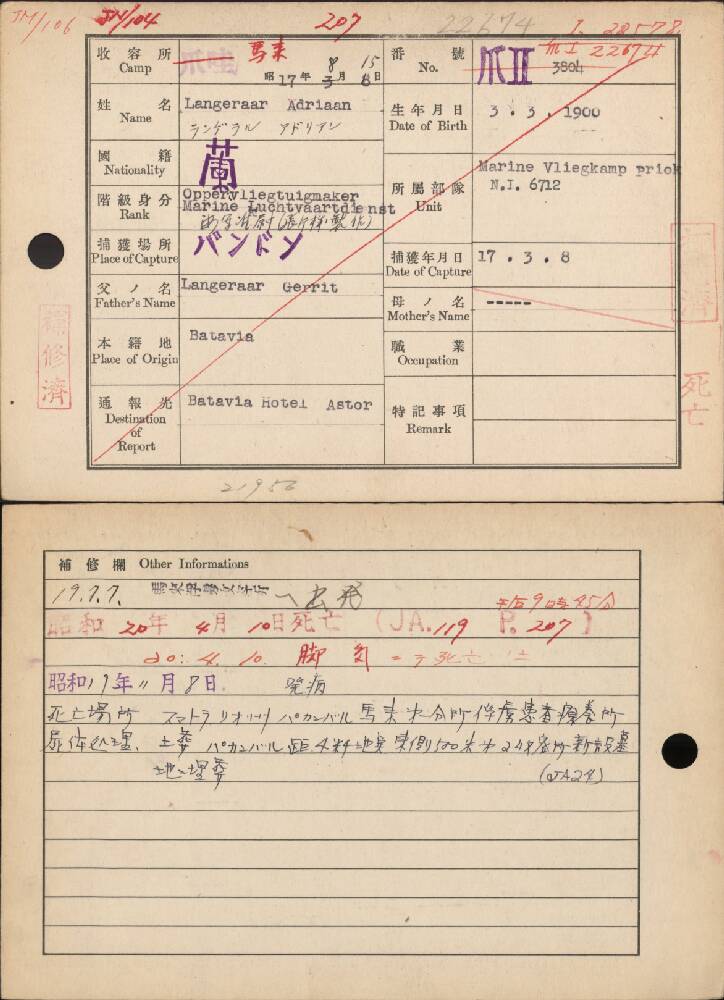 JM/106 JM/104 207 22674 I. 28578.
爪 I 22674
收容所 Camp 爪哇 馬来 昭17年 3月 8日 8 15
番號 No. 爪II 3804
姓名 Name Langeraar Adriaan
ランゲラル アドリアン
生年月日 Date of Birth 3 . 3 . 1900
國籍 Nationality 蘭
階級身分 Rank Oppervliegtuigmaker
Marine Luchtvaartdienst
所屬部隊 Unit Marine Vliegkamp priok
N.I. 6712
捕獲場所 Place of Capture バンドン
捕獲年月日 Date of Capture 17 . 3 . 8
父ノ名 Father's Name Langeraar Gerrit
母ノ名 Mother's Name -----
本籍地 Place of Origin Batavia
職業 Occupation
通報先 Destination of Report Batavia Hotel Astor
特記事項 Remark
補修濟
濟
死亡
21952
補修欄 Other Informations
19.7.7. ヘ出発
午后9時45分
昭和 20年 4月 10日死亡 (JA.119 P. 207)
20. 4. 10. 脚気ニテ死亡
昭和19年11月8日. 発病
死亡場所 スマトラ リオ州 パカンバル 馬来 分所俘虜患者療養所
屍体処理. 土葬 パカンバル 4粁地点 東側500米 新設墓
地ニ埋葬